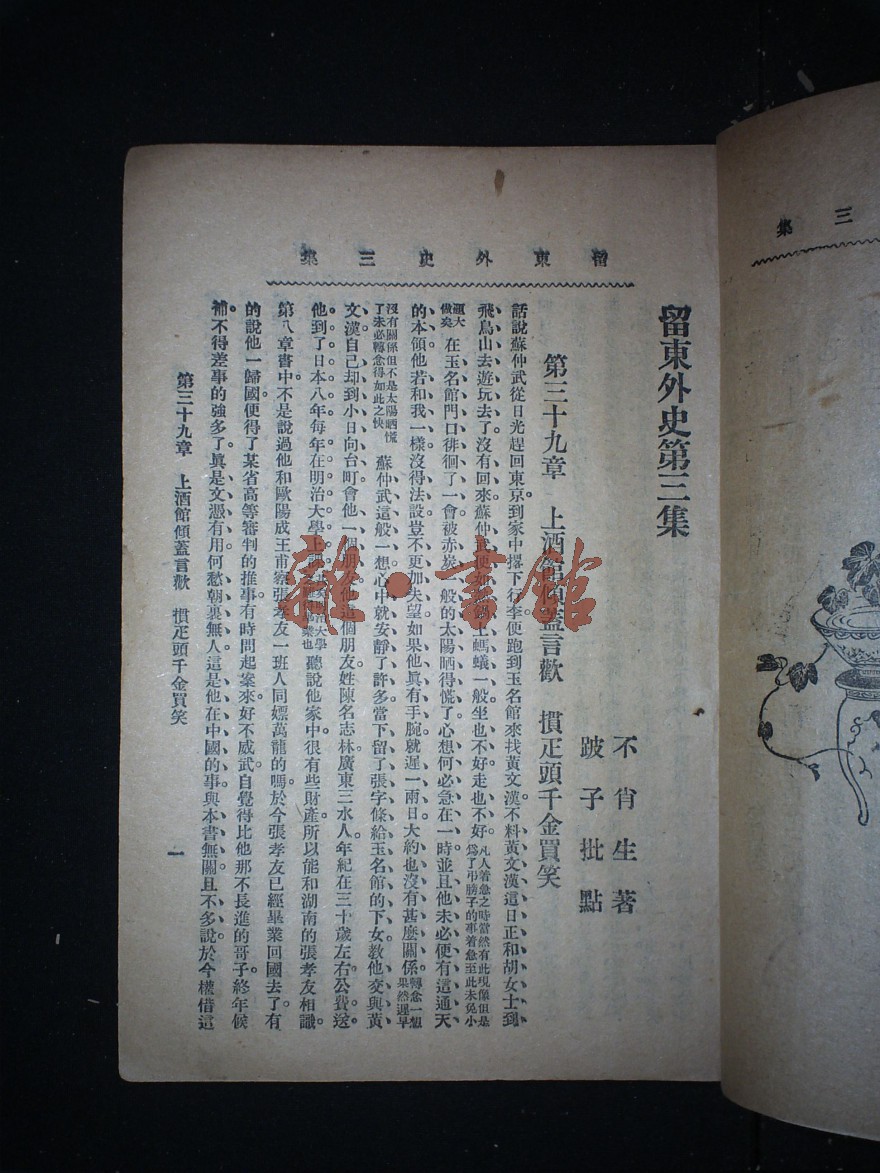 三集
留東外史三集
留東外史第三集
不肖生著
跛子批點
第三十九章　上酒館傾蓋言歡　慣疋頭千金買笑
話說蘇仲武從日光趕回東京到家中撂下行李便跑到玉名館來找黃文漢不料黃文漢這日正和胡女士到
飛鳥山去遊玩去了沒有回來蘇仲武便如鍋上螞蟻一般坐也不好走也不好凡人着急之時當然有此現象但是爲了吊膀子的事着急至此未免小
題大做矣在玉名館門口徘徊了一會被赤炭一般的太陽晒得慌了心想何必急在一時並且他未必便有這通天
的本領他若和我一樣沒得法設豈不更加失望如果他眞有手腕就遲一兩日大約也沒有甚麼關係轉念一想果然遲早
沒有關係但不是太陽晒慌了未必轉念得如此之快蘇仲武這般一想心中就安靜了許多當下留了張字條給玉名館的下女教他交與黃
文漢自己却到小日向台町會他一個朋友他這個朋友姓陳名志林廣東三水人年紀在三十歲左右公費送
他到了日本八年每年在明治大學上課大學也聽說他家中很有些財產所以能和湖南的張孝友相識
第八章書中不是說過他和歐陽成王甫察張孝友一班人同嫖萬龍的嗎於今張孝友已經畢業回國去了有
的說他一歸國便得了某省高等審判的推事有時問起案來好不威武自覺得比他那不長進的哥子終年候
補不得差事的強多了眞是文憑有用何愁朝裏無人這是他在中國的事與本書無關且不多說於今權借這
第三十九章　上酒館傾蓋言歡　慣疋頭千金買笑
一
雜·書館